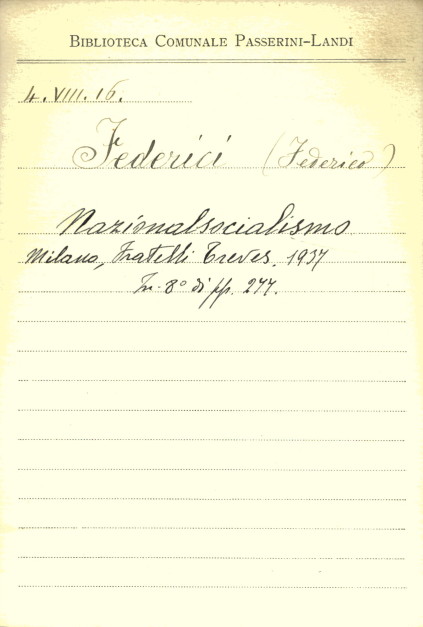 BIBLIOTECA COMUNALE PASSERINI-LANDI
4. VIII. 16.
Federici (Federico)
Nazionalsocialismo
Milano, Fratelli Treves. 1937
In-8° di pp. 277.